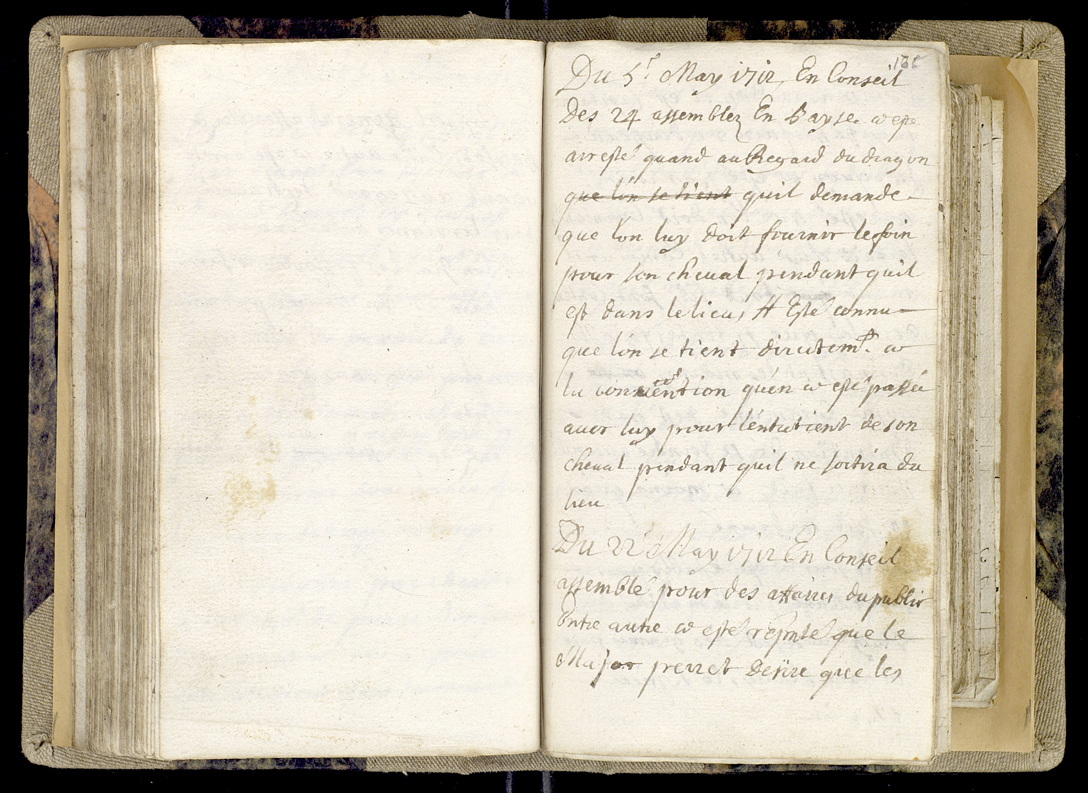 Du 5e May 1712 En Conseil
Des 24 assemblez En
arresté quand au Regard du dragon
que lon se tient quil demande
que lon luy doit fournir le foin
pour son cheval pendant quil
est dans le lieu, Esté connu
que lon se tient directemt. a
la convention quen a esté passée
avec luy pour lentretient de son
cheval pendant quil ne sortira du
lieu
Du 22e May 1712 En Conseil
assemblé pour des affaires du public
Entre autre a esté que le
Major perret Desire que les